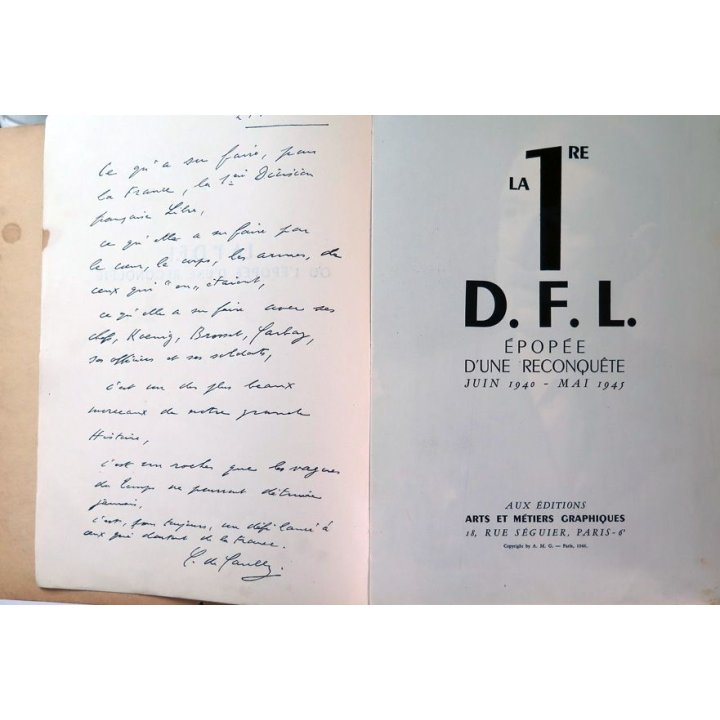 Ce qu'a su faire, pour
la France, la 1ère Division
française Libre,
ce qu'elle a su faire par
le cœur, le corps, les armes, de
ceux qui "en" étaient,
ce qu'elle a su faire avec ses
chefs, Koenig, Brosset, Garbay,
ses officiers et ses soldats,
c'est un des plus beaux
morceaux de notre grande
Histoire,
c'est un rocher que les vagues
du temps ne pourront détruire
jamais,
c'est, pour toujours, un défi lancé à
ceux qui doutent de la France.
C. de Gaulle.
LA 1RE
D. F. L.
ÉPOPÉE
D'UNE RECONQUÊTE
JUIN 1940 - MAI 1945
AUX ÉDITIONS
ARTS ET MÉTIERS GRAPHIQUES
18, RUE SÉGUIER, PARIS-6e
Copyright by A. M. G. — Paris, 1946.